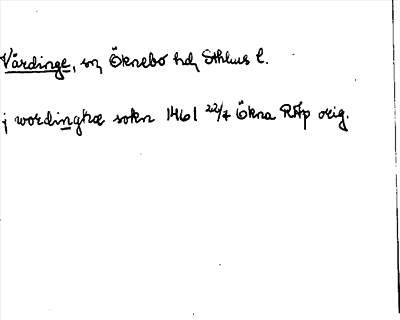 Vårdinge, sn, Öknebo hd, Sthlms l.
j wordingha sokn 1461 22/7 Ökna RAp orig.